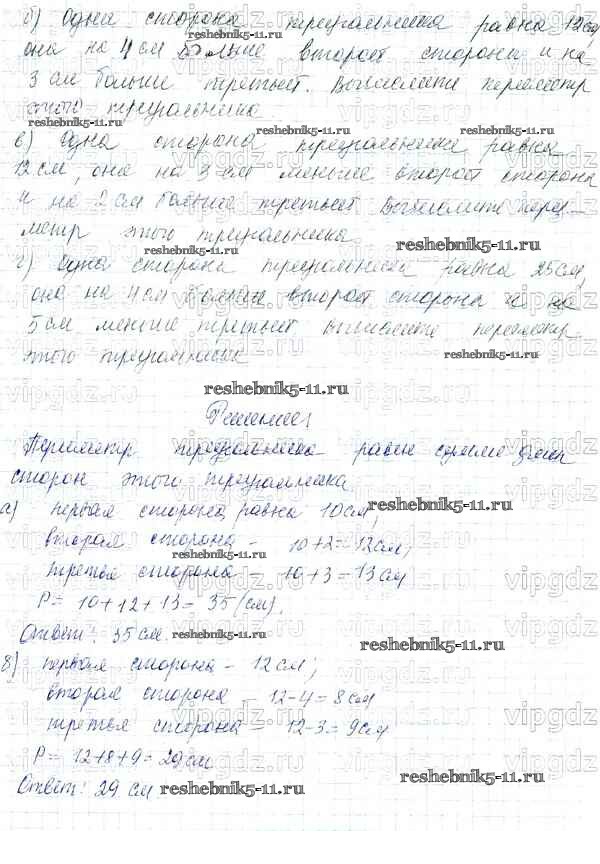 б) Одна сторона треугольника равна 12см,
она на 4 см больше второй стороны и на
3 см больше третьей. Вычислите периметр
этого треугольника
в) Одна сторона треугольника равна
12 см, она на 3 см меньше второй стороны
и на 2 см больше третьей Вычислите пери-
метр этого треугольника
г) Одна сторона треугольника равна 25см,
она на 4 см больше второй стороны и на
5 см меньше третьей Вычислите периметр
этого треугольника
reshebnik5-11.ru
Решение:
Периметр треугольника равен сумме длин
сторон этого треугольника
а) первая сторона равна 10см,
вторая сторона - 10+2=12см,
третья сторона - 10+3=13см
P= 10+12+13=35(см).
Ответ: 35 см.
б) первая сторона - 12см;
вторая сторона - 12-4=8см
третья сторона - 12-3=9см
P= 12+8+9=29см
Ответ: 29 см